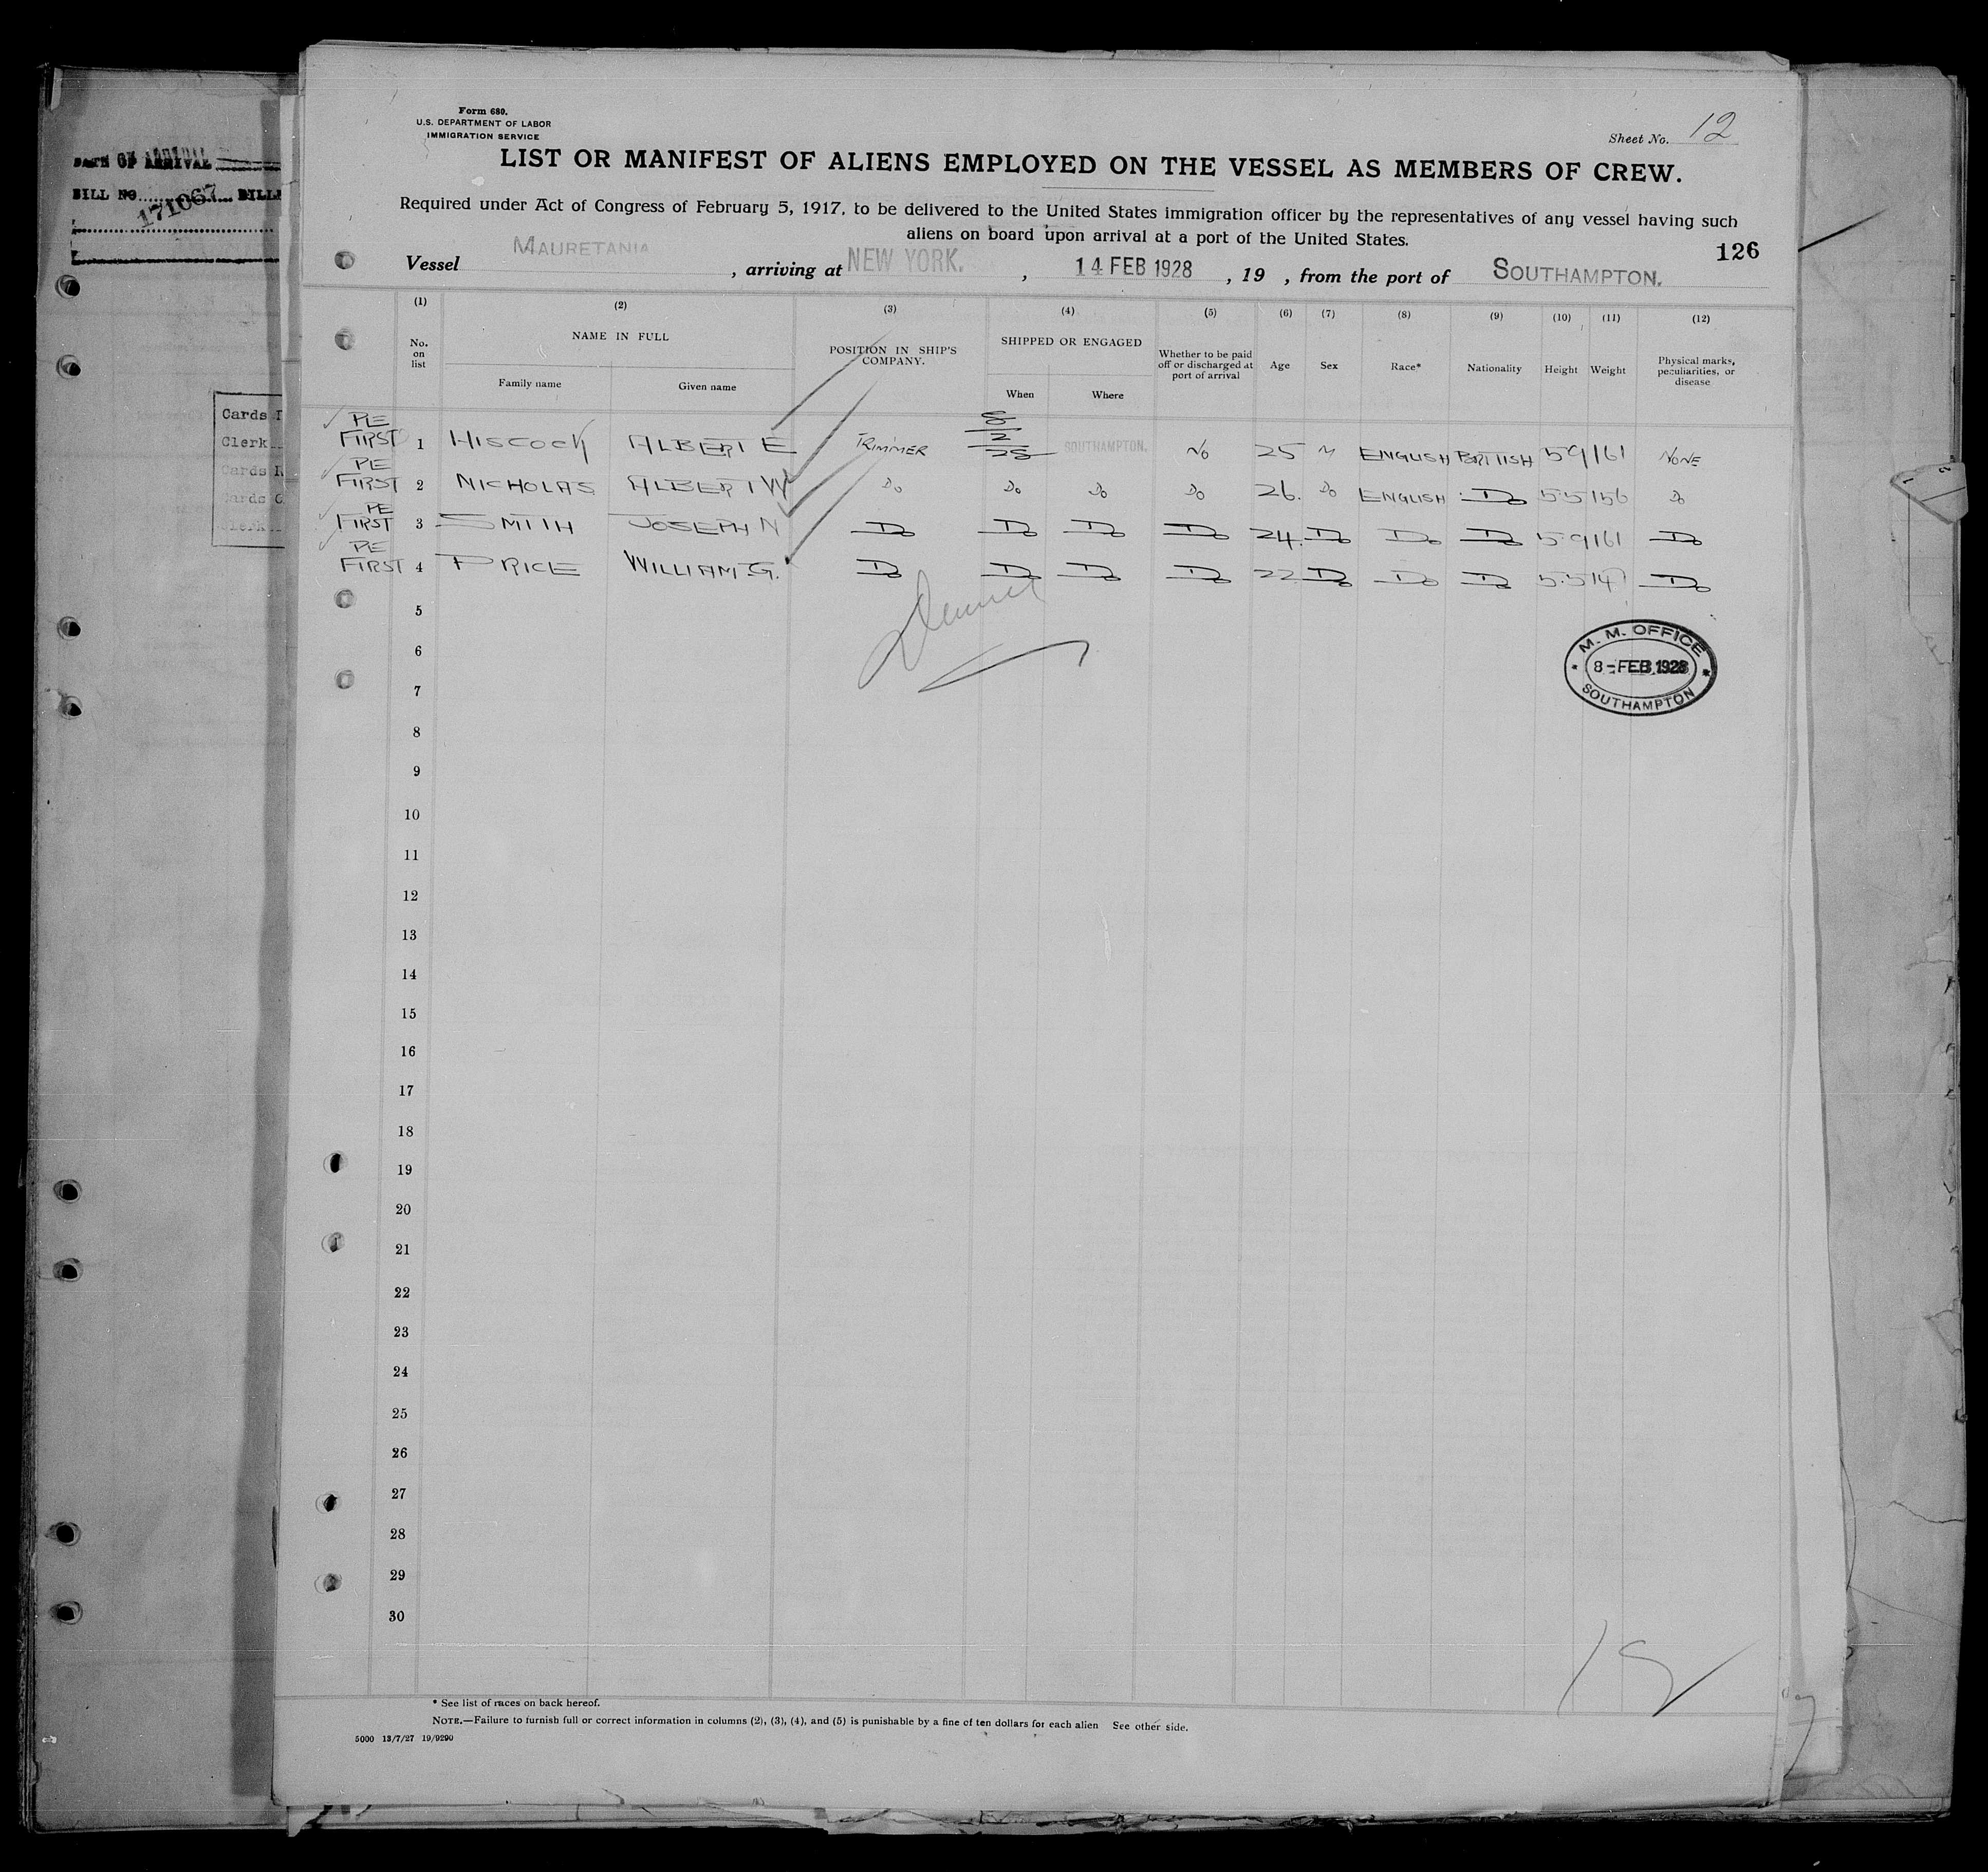 Form 680.
U.S. DEPARTMENT OF LABOR
IMMIGRATION SERVICE
Sheet No. 12
LIST OR MANIFEST OF ALIENS EMPLOYED ON THE VESSEL AS MEMBERS OF CREW.
Required under Act of Congress of February 5, 1917, to be delivered to the United States immigration officer by the representatives of any vessel having such
aliens on board upon arrival at a port of the United States.
126
Vessel MAURETANIA, arriving at NEW YORK., 14 FEB 1928, 19 , from the port of SOUTHAMPTON.
DATE OF ARRIVAL
BILL NO. 171067
Cards
Clerk
Cards
Cards
Clerk
(1) (2) (3) (4) (5) (6) (7) (8) (9) (10) (11) (12)
No. on list
NAME IN FULL
Family name Given name
POSITION IN SHIP'S COMPANY.
SHIPPED OR ENGAGED
When Where
Whether to be paid off or discharged at port of arrival
Age Sex Race* Nationality Height Weight
Physical marks, peculiarities, or disease
PE FIRST 1 HISCOCK ALBERT E TRIMMER 8/2/28 SOUTHAMPTON. NO 25 M ENGLISH BRITISH 5 9 161 NONE
PE FIRST 2 NICHOLAS ALBERT W Do Do Do Do 26. Do ENGLISH Do 5 5 156 Do
PE FIRST 3 SMITH JOSEPH N Do Do Do Do 24. Do Do Do 5 9 161 Do
PE FIRST 4 PRICE WILLIAM.G. Do Do Do Do 22 Do Do Do 5.5 147 Do
5
6
7
8
9
10
11
12
13
14
15
16
17
18
19
20
21
22
23
24
25
26
27
28
29
30
M. M. OFFICE
8-FEB 1928
SOUTHAMPTON
* See list of races on back hereof.
NOTE.—Failure to furnish full or correct information in columns (2), (3), (4), and (5) is punishable by a fine of ten dollars for each alien See other side.
5000 13/7/27 19/9290